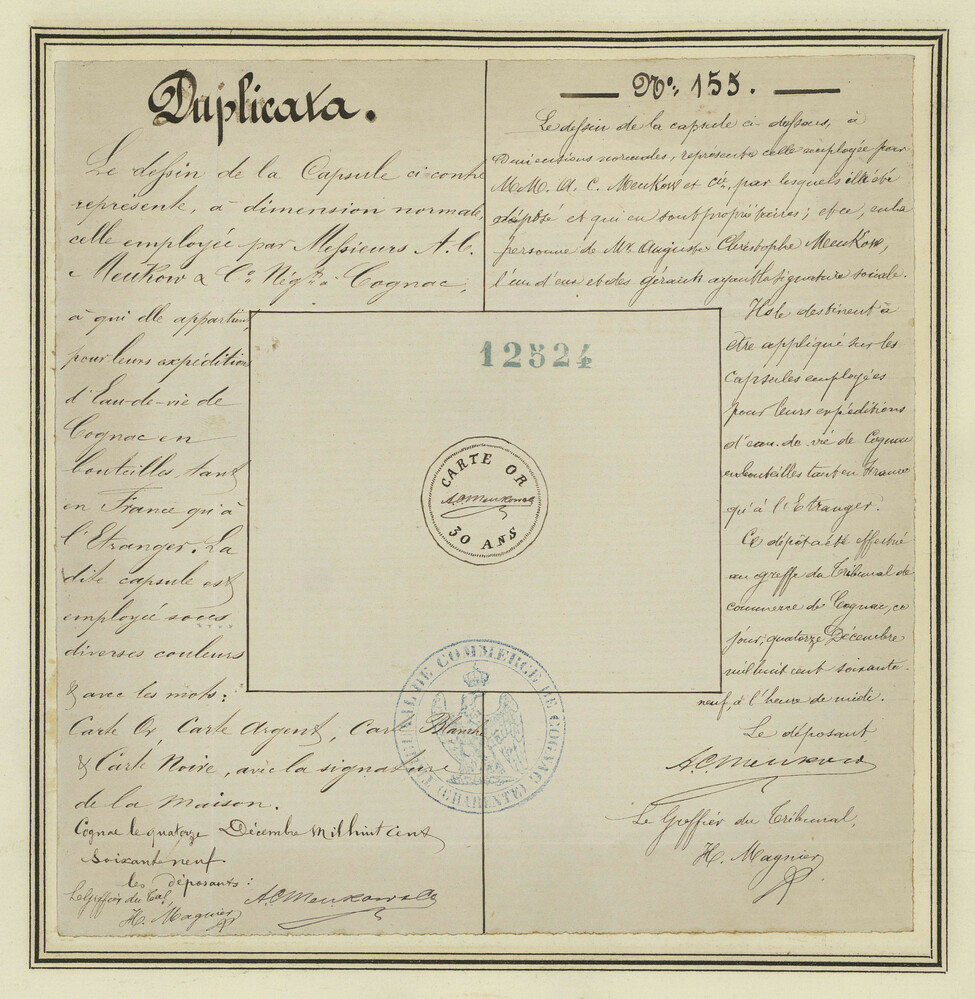 Duplicata.
Le dessin de la Capsule ci-contre
représente, à dimension normale,
celle employée par Messieurs A. C.
Meukow & Co Négts à Cognac,
à qui elle appartient,
pour leurs expédition
d'Eau-de-vie de
Cognac en
bouteilles, tant
en France qu'à
l'Etranger. La
dite capsule est
employée sous
diverses couleurs
& avec les mots:
Carte Or, Carte Argent, Carte Blanche
& Carte Noire, avec la signature
de la maison.
Cognac le quatorze Décembre mil huit cent
soixante neuf.
les déposants:
Le Greffier du Tal,
H. Magnier
A.C. Meukow & Co
No: 155.
Le dessin de la capsule ci-dessous, à
dimensions normales, représente celle employée par
MM. A. C. Meukow et Cie, par lesquels il a été
déposé et qui en sont propriétaires; et ce, en la
personne de Mr. Auguste Christophe Meukow,
l'un d'eux et des gérants ayant la signature sociale.
Ils le destinent à
être appliqué sur les
capsules employées
pour leurs expéditions
d'eau-de-vie de Cognac
en bouteilles tant en France
qu'à l'Etranger.
Ce dépôt a été effectué
au greffe du Tribunal de
commerce de Cognac, ce
jour, quatorze Décembre
mil huit cent soixante-
neuf, à l'heure de midi.
Le déposant
A.C. Meukow
Le Greffier du Tribunal,
H. Magnier
12524
CARTE OR
A.C. Meukow & Co
30 ANS
TRIBUNAL DE COMMERCE DE COGNAC
(CHARENTE)